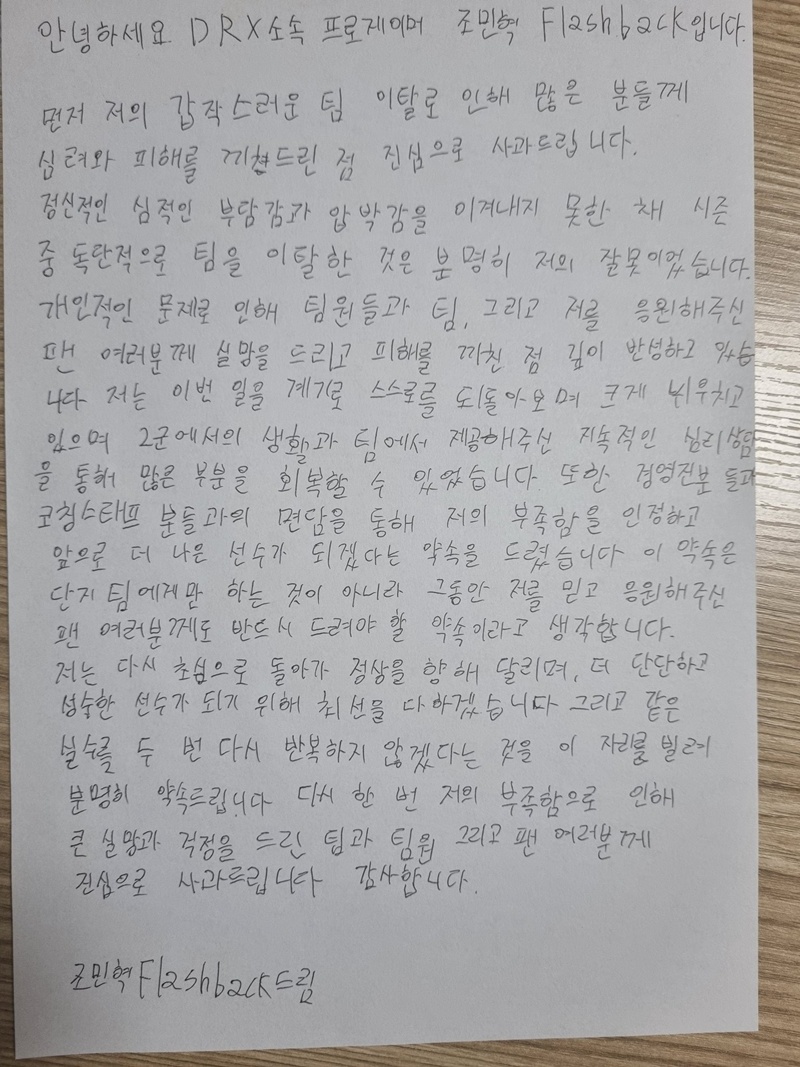 안녕하세요 DRX소속 프로게이머 조민혁 Flashback입니다.
먼저 저의 갑작스러운 팀 이탈로 인해 많은 분들께
심려와 피해를 끼쳐드린 점 진심으로 사과드립니다.
정신적인 심적인 부담감과 압박감을 이겨내지 못한 채 시즌
중 독단적으로 팀을 이탈한 것은 분명히 저의 잘못이었습니다.
개인적인 문제로 인해 팀원들과 팀, 그리고 저를 응원해주신
팬 여러분께 실망을 드리고 피해를 끼친 점 깊이 반성하고 있습
니다 저는 이번 일을 계기로 스스로를 되돌아보며 크게 뉘우치고
있으며 2군에서의 생활과 팀에서 제공해주신 지속적인 심리상담
을 통해 많은 부분을 회복할 수 있었습니다. 또한 경영진분 들과
코칭스태프 분들과의 면담을 통해 저의 부족함을 인정하고
앞으로 더 나은 선수가 되겠다는 약속을 드렸습니다 이 약속은
단지 팀에게만 하는 것이 아니라 그동안 저를 믿고 응원해주신
팬 여러분께도 반드시 드려야 할 약속이라고 생각합니다.
저는 다시 초심으로 돌아가 정상을 향해 달리며, 더 단단하고
성숙한 선수가 되기 위해 최선을 다하겠습니다 그리고 같은
실수를 두 번 다시 반복하지 않겠다는 것을 이 자리를 빌려
분명히 약속드립니다 다시 한 번 저의 부족함으로 인해
큰 실망과 걱정을 드린 팀과 팀원 그리고 팬 여러분께
진심으로 사과드립니다 감사합니다.
조민혁Flashback드림